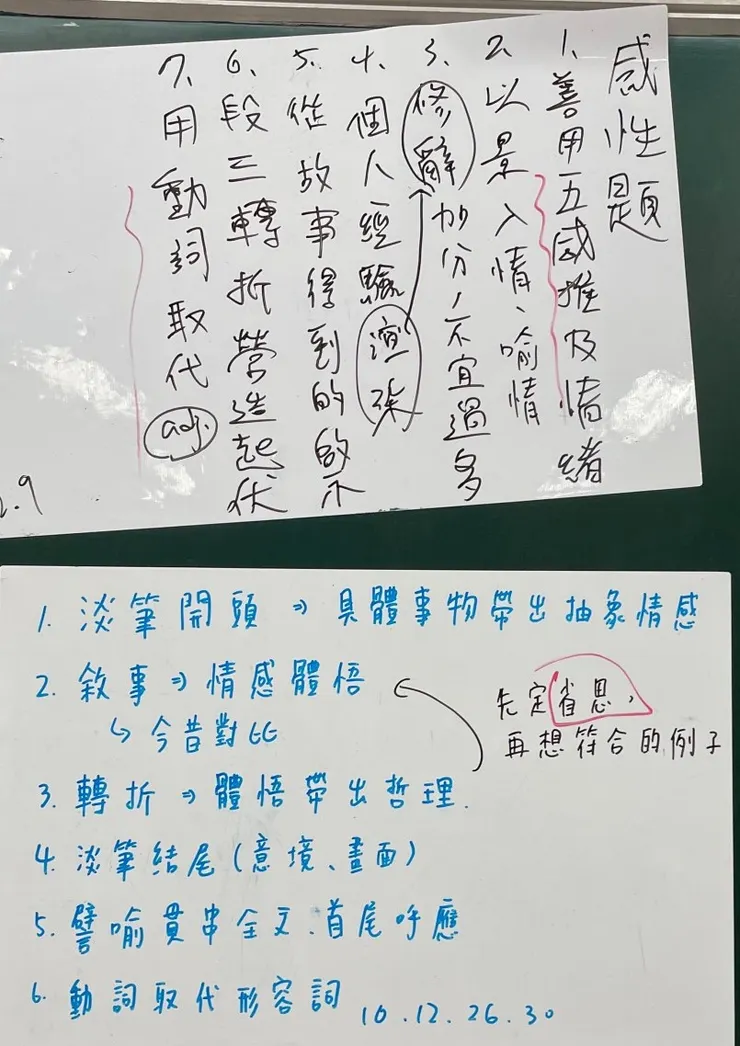 感性題
1、善用五感推及情緒
2、以景入情、喻情
3、修辭加分,不宜過多
4、個人經驗渲染
5、從故事得到的啟示
6、段三轉折營造起伏
7、用動詞取代adj.
2.9
1. 淡筆開頭⇒具體事物帶出抽象情感
2. 敘事⇒情感體悟
↳今昔對比
先定省思,
再想符合的例子
3. 轉折⇒體悟帶出哲理.
4. 淡筆結尾(意境、畫面)
5. 譬喻貫串全文、首尾呼應
6. 動詞取代形容詞
10.12.26.30